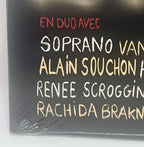 EN DUO AVEC
SOPRANO VAN
ALAIN SOUCHON
RENEE SCROGGIN
RACHIDA BRAKN